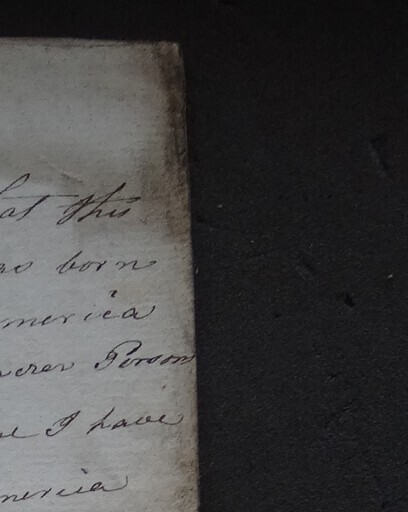 at this
born
merica
Person
I have
merica